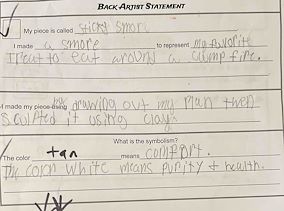 BACK-ARTIST STATEMENT
My piece is called sticky smore
I made a smore to represent my favorite
treat to eat around a camp fire.
I made my piece using by drawing out my plan then
sculpted it using clay.
What is the symbolism?
The color tan means comfort.
The corn white means purity + health.